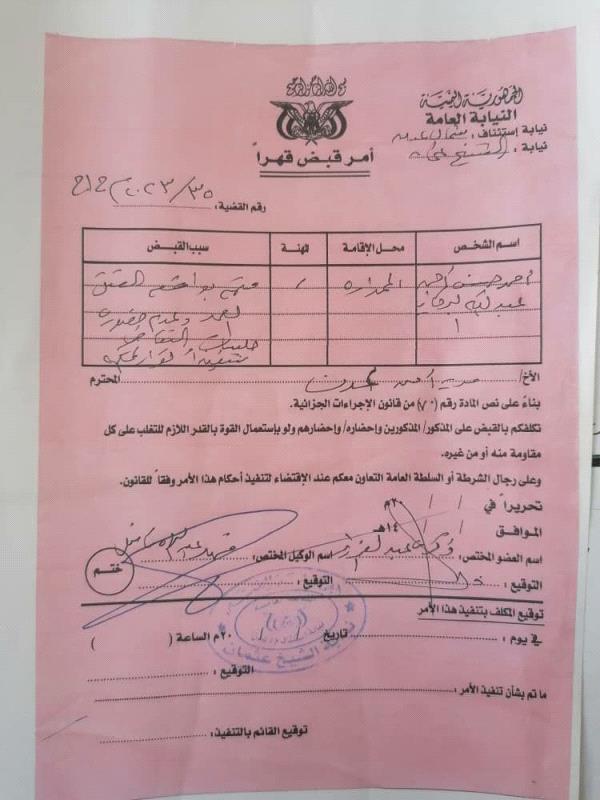 الجمهورية اليمنية
النيابة العامة
نيابة إستئناف : شمال عدن
نيابة : الشيخ عثمان
أمر قبض قهراً
رقم القضية : ٣٥/٢٠٢٣م ج ج
اسم الشخص محل الإقامة المهنة سبب القبض
احمد حسن احمد
عبد الله
الممداره /
العمد وعدم حضوره
جلسات
الأخ/ مدير أمن عدن المحترم
بناءً على نص المادة رقم (٧٠) من قانون الإجراءات الجزائية.
نكلفكم بالقبض على المذكور/ المذكورين وإحضاره/ وإحضارهم ولو بإستعمال القوة بالقدر اللازم للتغلب على كل
مقاومة منه أو من غيره.
وعلى رجال الشرطة أو السلطة العامة التعاون معكم عند الإقتضاء لتنفيذ أحكام هذا الأمر وفقاً للقانون.
تحريراً في / / ٢٠م
الموافق / / ١٤هـ
اسم العضو المختص: اسم الوكيل المختص:
التوقيع : التوقيع :
ختم
توقيع المكلف بتنفيذ هذا الأمر
في يوم : تاريخ / / ٢٠م الساعة ( )
التوقيع :
نيابة الشيخ عثمان
ما تم بشأن تنفيذ الأمر :
توقيع القائم بالتنفيذ :